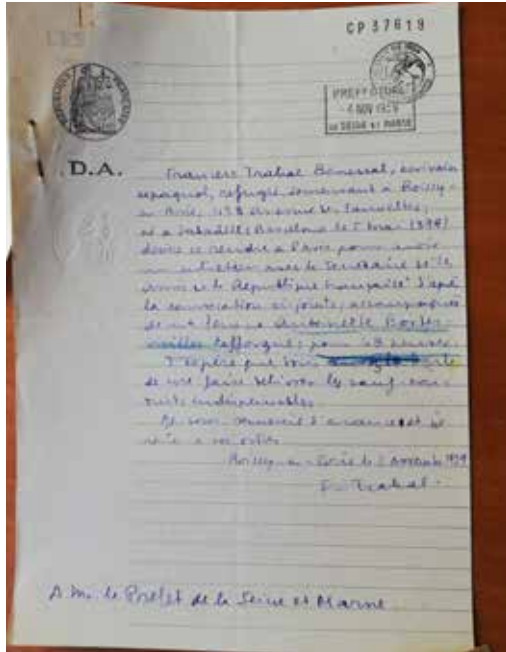 CP 37619
PREFECTURE
4 NOV 1939
DE SEINE ET MARNE
.D.A.
Francesc Trabal Benessat, écrivain
espagnol, réfugié, demeurant à Roissy-
en Brie, 43 avenue de
né à Sabadell (Barcelona le 5 mai 1898)
désire se rendre à Paris pour avoir
un entretien avec le Secrétaire de "le
de la République Française" d'après
la convocation ci-jointe, accompagné
de sa femme Antoinette Bordes-
Lafforgue, pour 48 heures.
J'espère que vous
de me faire délivrer les sauf-con-
duits indispensables.
En vous d'avance et je
reste à vos ordres
Roissy-en-Brie le 2 novembre 1939
F. Trabal
A M. le Préfet de la Seine et Marne